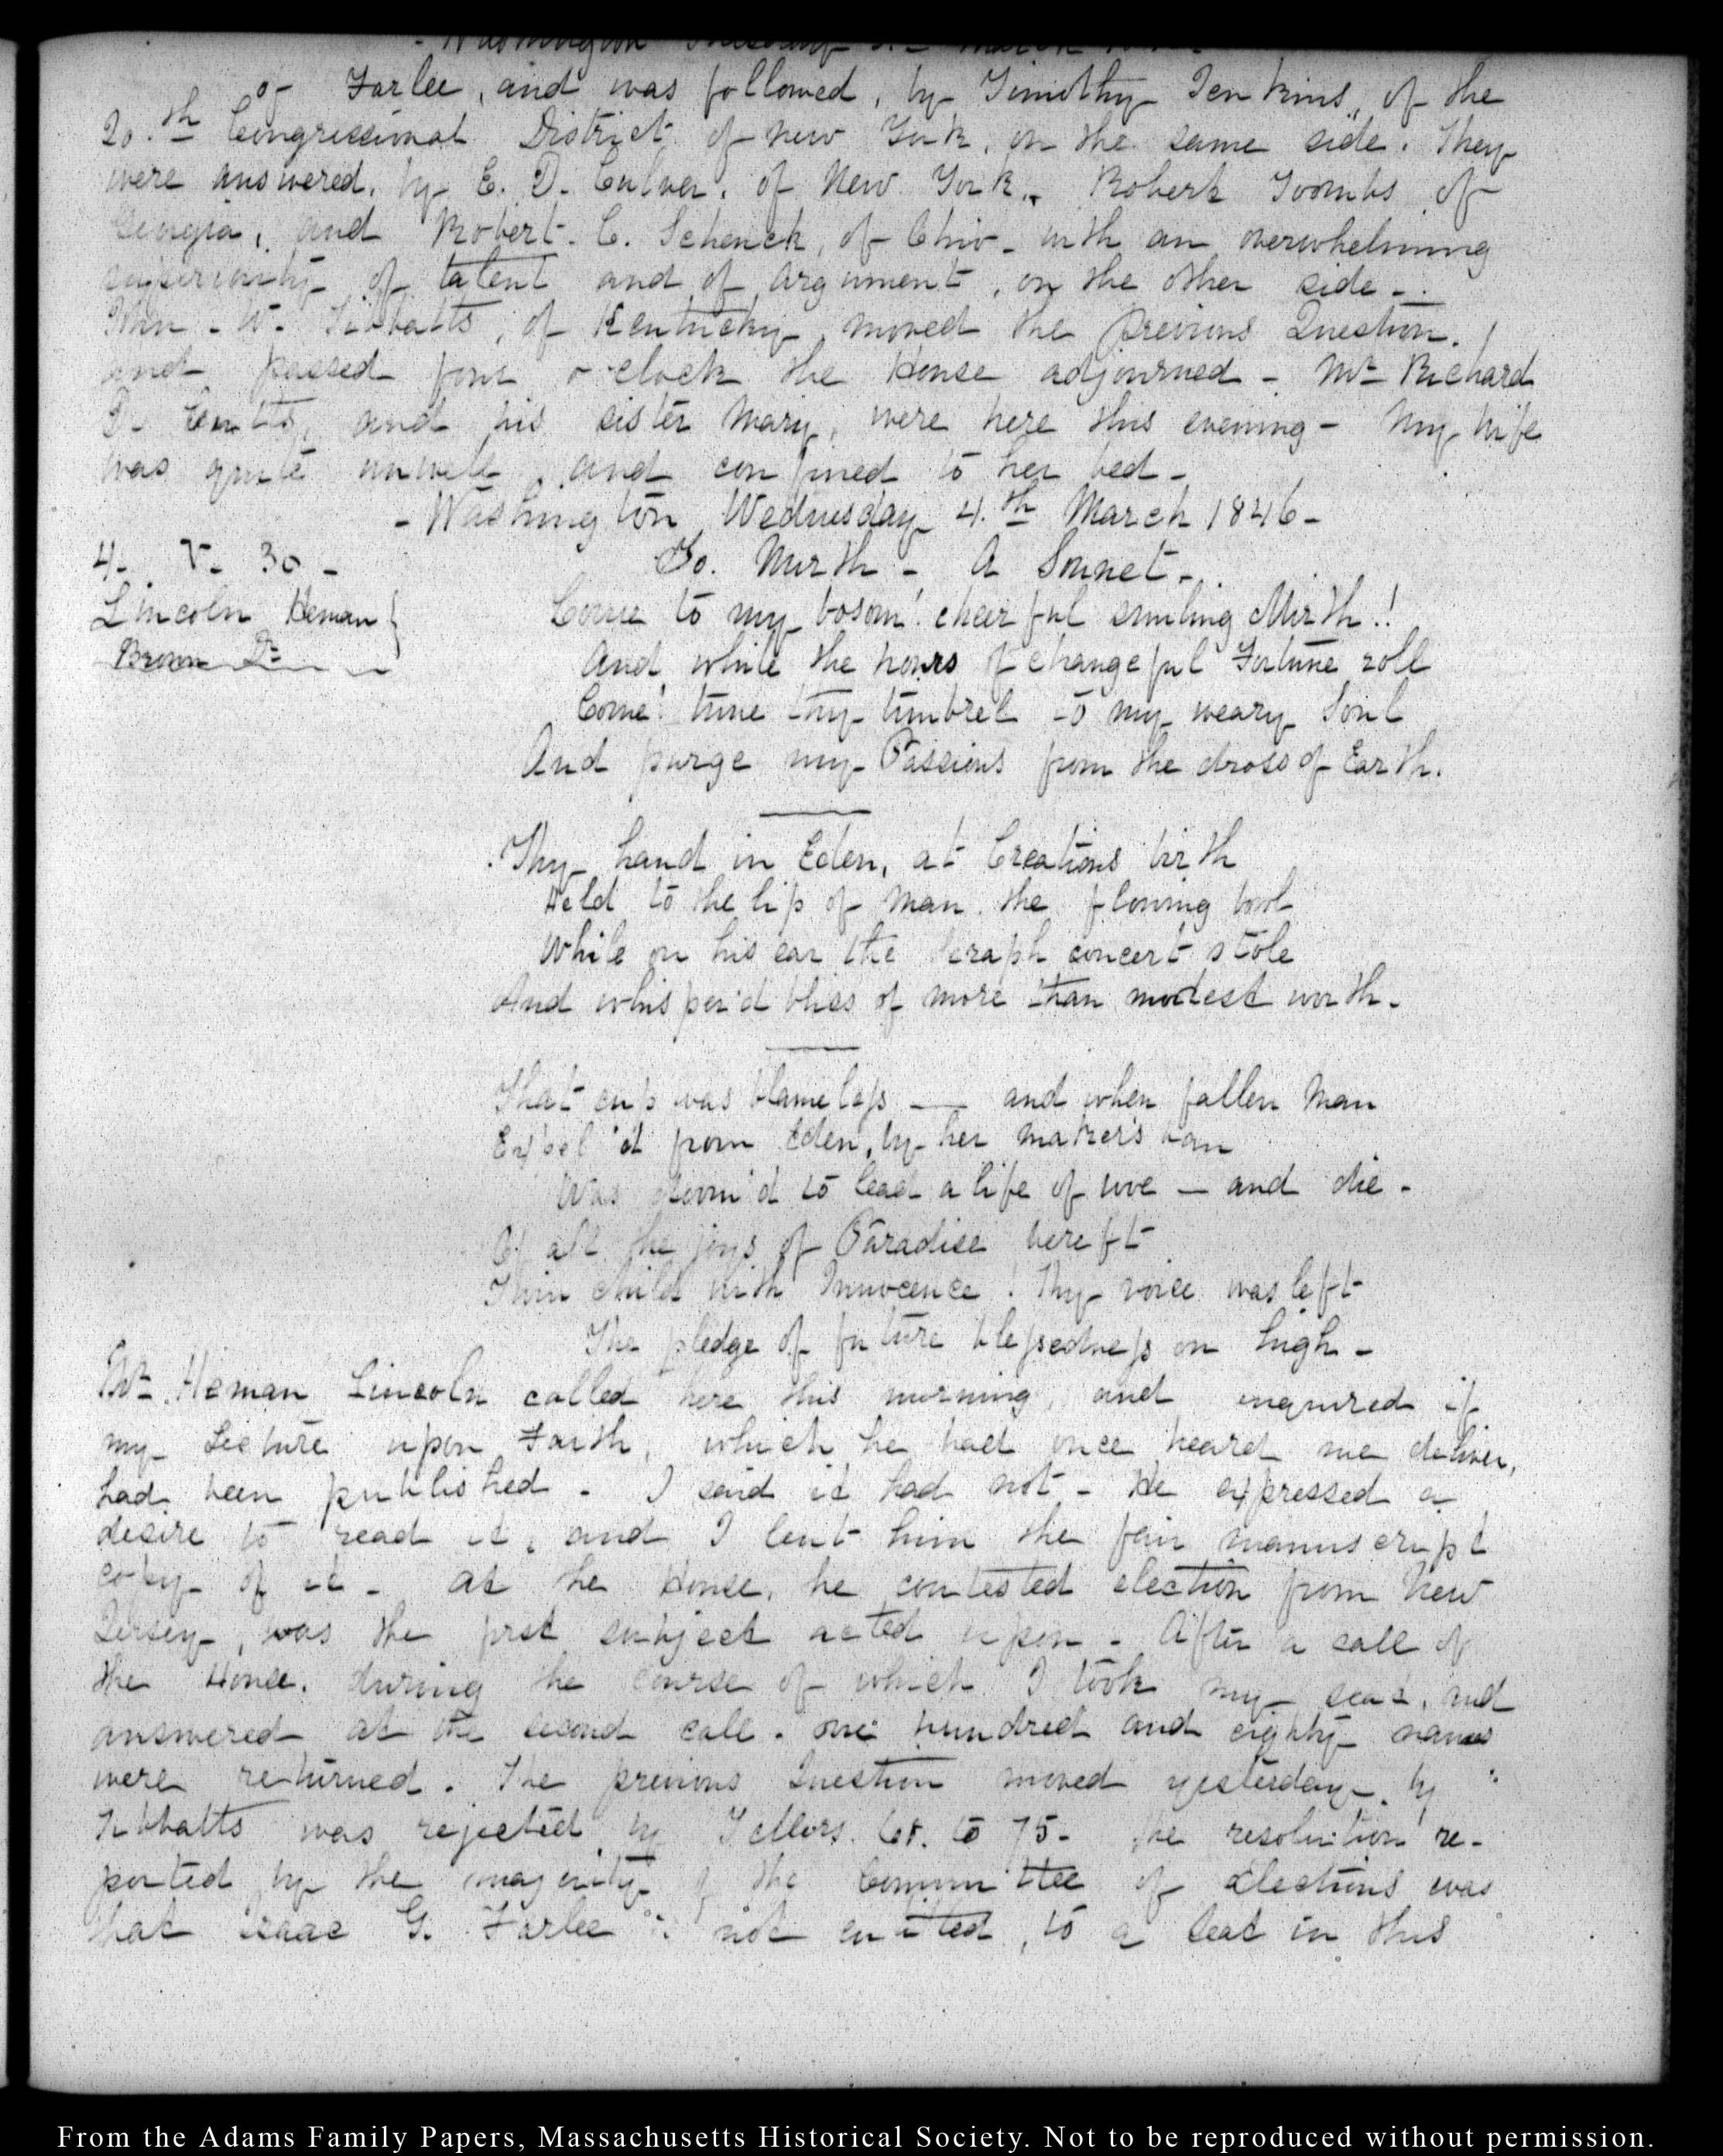 - Washington Tuesday 3d March 1846.
of Farlee, and was followed, by Timothy Jenkins, of the
20.th Congressional District of New York, on the same side. They
were answered, by E. D. Culver, of New York, Robert Toombs of
Georgia, and Robert C. Schenck, of Ohio - with an overwhelming
superiority of talent and of argument, on the other side -
John W. Tibbatts, of Kentucky moved the previous Question.
and passed four o'clock the House adjourned - Mr Richard
D. Cutts, and his sister Mary, were here this evening - My wife
was quite unwell, and confined to her bed -
- Washington Wednesday 4.th March 1846 -
4. V. 30 -
Lincoln Heman
Brown Dr
To Mirth - A Sonnet -
Come to my bosom! cheerful smiling Mirth!!
And while the hours of changeful Fortune roll
Come! tune thy timbrel to my weary Soul
And purge my Passions from the dross of Earth.
Thy hand in Eden, at Creations birth
Held to the lip of man the flowing bowl
While on his ear the Seraph concert stole
And whisper'd bliss of more than modest worth.
That cup was blameless — and when fallen Man
Expel'd from Eden, by her maker's ban
Was doom'd to lead a life of woe — and die -
Of all the joys of Paradise bereft
Twin child with Innocence! Thy voice was left
The pledge of future blessedness on high -
Mr Heman Lincoln called here this morning, and enquired if
my Lecture upon Faith, which he had once heard me deliver,
had been published - I said it had not - He expressed a
desire to read it, and I lent him the fair manuscript
copy of it - At the House, the contested election from New
Jersey, was the first subject acted upon - After a call of
the House, during the course of which I took my seat, and
answered at the second call. one hundred and eighty names
were returned. The previous Question moved yesterday by
Tibbatts was rejected by Tellers. 68. to 75 - the resolution re-
ported by the majority of the Committee of Elections was
that Isaac G. Farlee is not entitled, to a seat in this
From the Adams Family Papers, Massachusetts Historical Society. Not to be reproduced without permission.